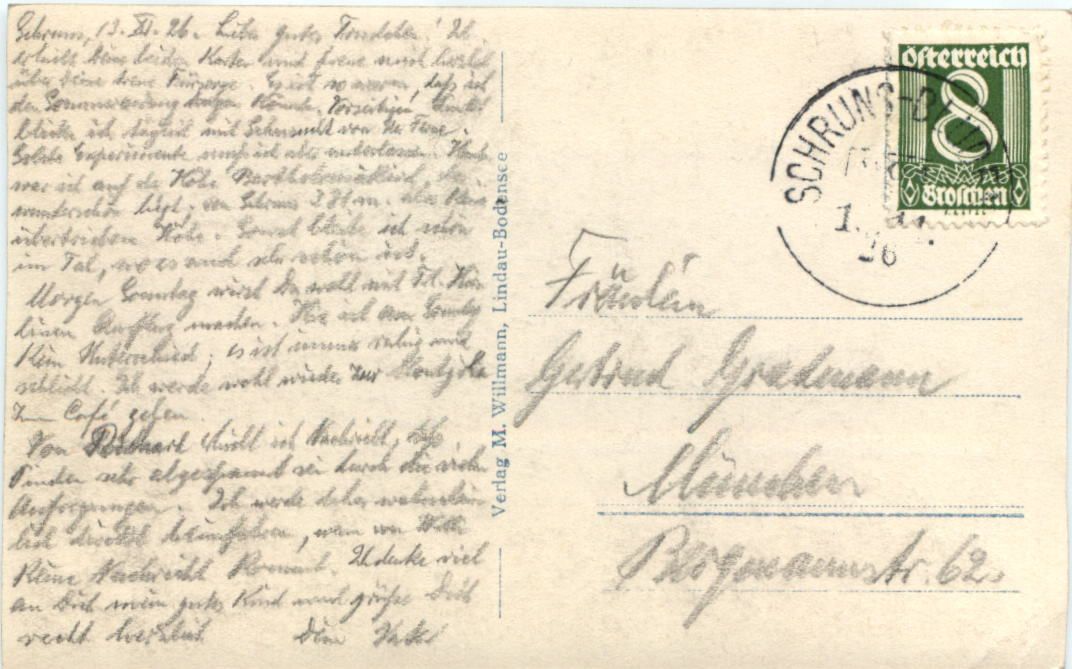 Schruns, 13. XI. 26. Liebes gutes! Ich
erhielt Deine beiden Karten und freue mich herzlich
über Deine treue Fürsorge. Es ist so warm, daß ich
den Sommeranzug tragen könnte.
blicke ich täglich mit Sehnsucht von der Ferne.
Solche Experimente muß ich aber unterlassen. Heute
war ich auf der Höhe Bartholomäberg, das
wunderschön liegt, von Schruns
Höhe. Sonst bleibe ich schön
im Tal, wo es auch sehr schön ist.
Morgen Sonntag wirst Du wohl mit Frl.
einen Ausflug machen. Hier ist am Sonntag
kein Unterschied; es ist immer ruhig und
schlicht. Ich werde wohl wieder zur
zum Café gehen.
Von erhielt ich Nachricht, daß
sehr abgespannt sei durch die vielen
Aufregungen. Ich werde daher wahrschein-
lich direkt heimfahren, wenn von
keine Nachricht kommt. Ich denke viel
an Dich mein gutes Kind und grüße Dich
recht herzlich Dein Vater
Verlag M. Willmann, Lindau-Bodensee
Österreich
8
Groschen
SCHRUNS-BLUD
26
Fräulein
Gertrud Gradmann
München
Bergmannstr. 62.